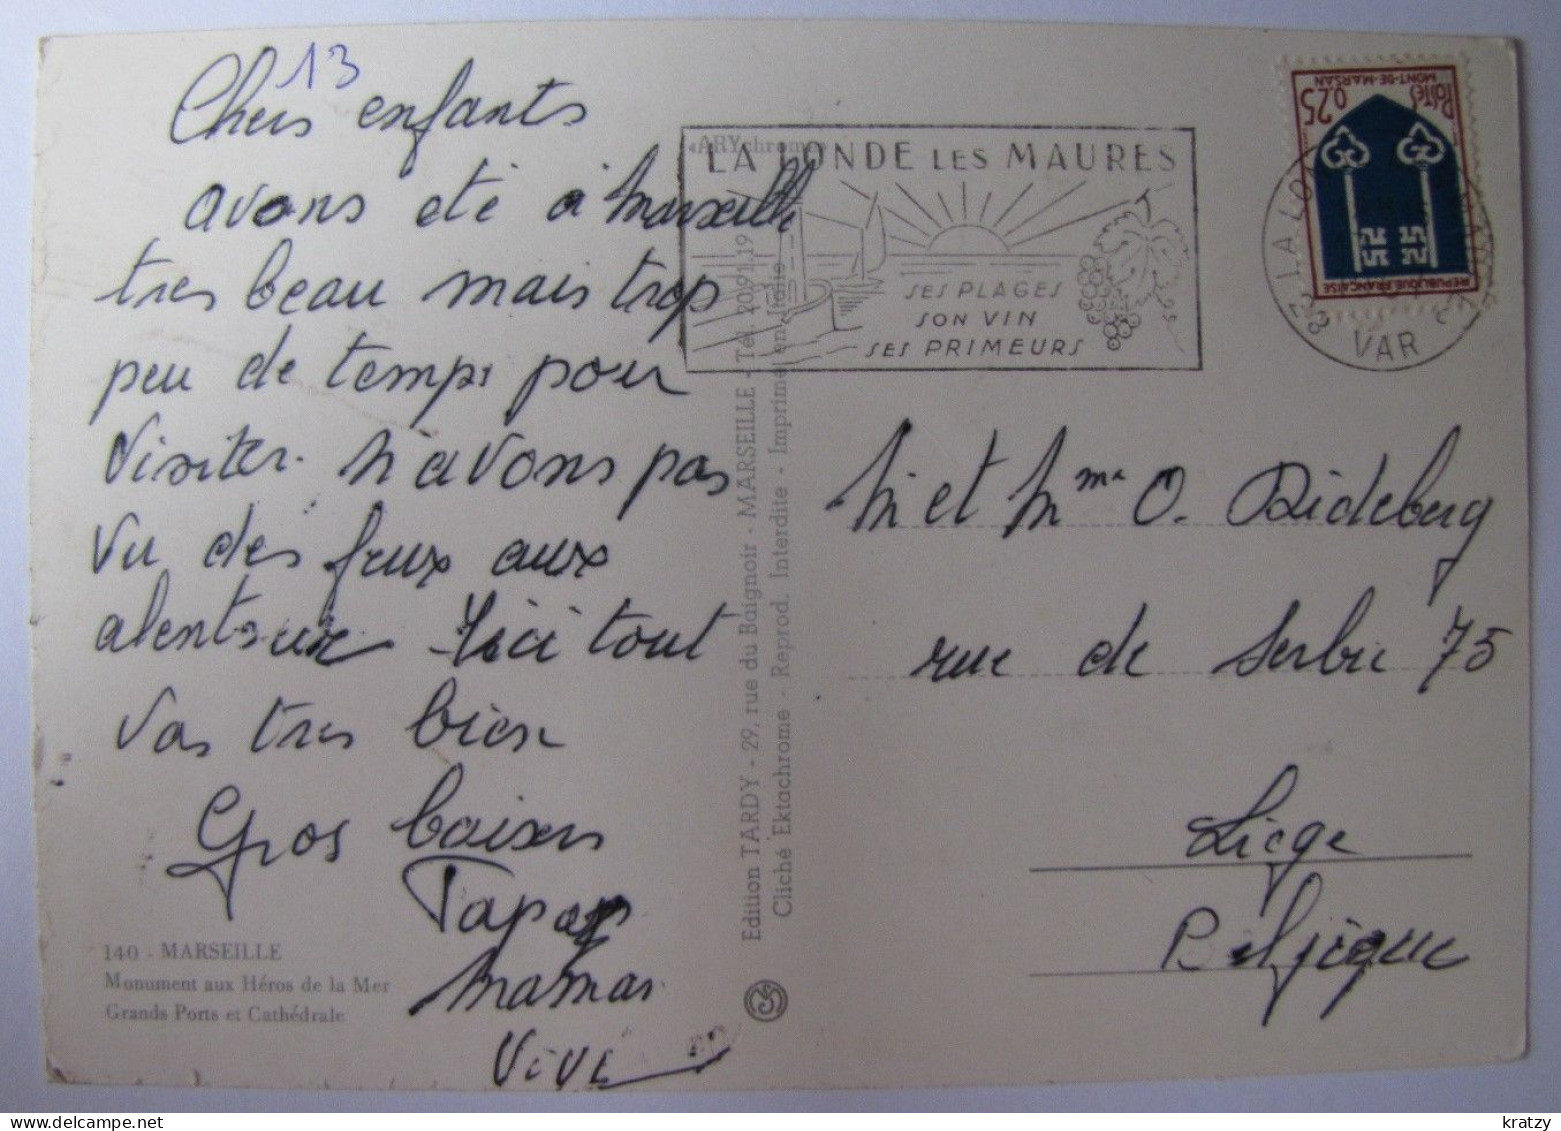 13
Chers enfants
avons été à Marseille
tres beau mais trop
peu de temps pour
visiter. N'avons pas
vu des feux aux
alentours Ici tout
vas tres bien
Gros baisers
Papa
Maman
Vivi
140 - MARSEILLE
Monument aux Héros de la Mer
Grands Ports et Cathédrale
«ARYchrome»
Edition TARDY - 29, rue du Baignoir - MARSEILLE - Tél. 20.91.19
Cliché Ektachrome - Reprod. Interdite - Imprimé en Italie
LA LONDE LES MAURES
SES PLAGES
SON VIN
SES PRIMEURS
POSTES
0,25
MONT-DE-MARSAN
REPUBLIQUE FRANÇAISE
LA LONDE
VAR
M et Mme O. Dideberg
rue de Serbie 75
Liège
Belgique
kratzy
delcampe.net